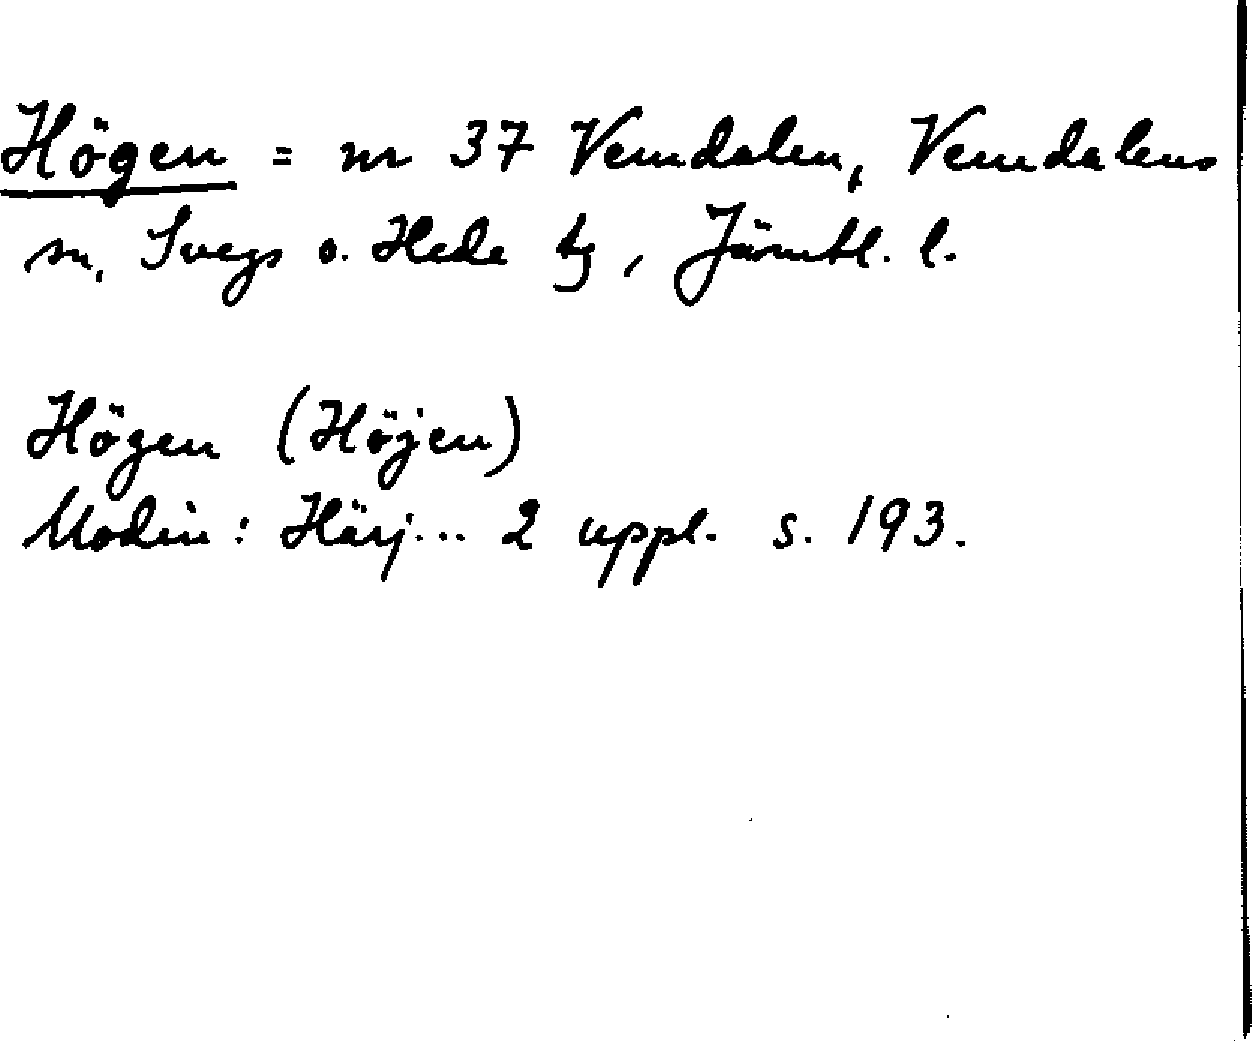 Högen = nr 37 Vemdalen, Vemdalens
sn, Svegs o. Hede tg, Jämtl. l.
Högen (Höjen)
Modin: Härj... 2 uppl. s. 193.